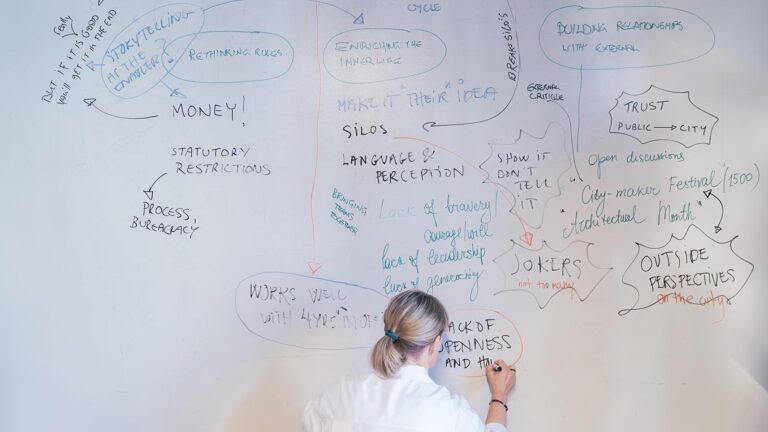 CYCLE
really
BUT IF IT IS GOOD
You'll GET IT IN THE END
STORYTELLING
AS THE
ENABLER
?
RETHINKING RULES
ENRICHING THE
INNER LIFE
BREAK SILO'S
BUILDING RELATIONSHIPS
WITH EXTERNAL
MONEY!
STATUTORY
RESTRICTIONS
PROCESS,
BUREAUCRACY
MAKE IT "THEIR" IDEA
SILOS
LANGUAGE &
PERCEPTION
BRINGING
TEAMS
TOGETHER
Lack of bravery/
courage/will
lack of leadership
lack of generosity
EXTERNAL
CRITIQUE
SHOW IT
DON'T
TELL
IT
JOKERS
not too many
TRUST
PUBLIC → CITY
Open discussions
"City-maker Festival" (1500)
"Architectural Month"
OUTSIDE
PERSPECTIVES
on the city
WORKS WELL
WITH 4YRS "IN
LACK OF
OPENNESS
AND